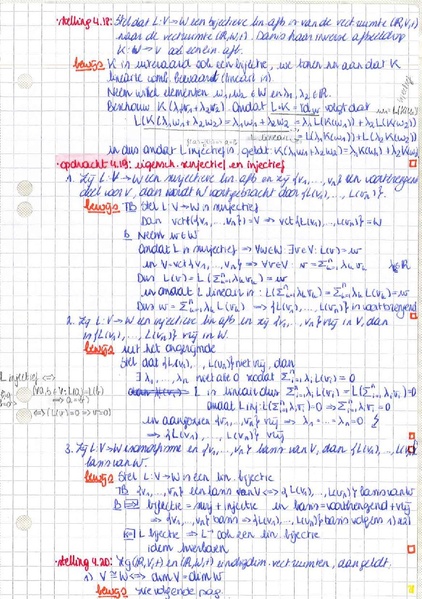 • stelling 4.18: Stel dat L: V → W een bijectieve lin. afb is van de vect.ruimte (ℝ,V,+)
naar de vectorruimte (ℝ,W,+). Dan is haar inverse afbeelding
K: W → V ook een lin. afb.
bewijs K is uiteraard ook een bijectie, we tonen nu aan dat K
lineaire comb. bewaart (lineair is).
Neem willek. elementen w₁, w₂ ∈ W en λ₁, λ₂ ∈ ℝ.
Beschouw K(λ₁w₁+λ₂w₂). Omdat L∘K = Id_W volgt dat
L(K(λ₁w₁+λ₂w₂)) = λ₁w₁+λ₂w₂ = λ₁L(K(w₁)) + λ₂L(K(w₂))
L lineair = L(λ₁K(w₁)) + L(λ₂K(w₂))
en dus omdat L injectief is geldt: K(λ₁w₁+λ₂w₂) = λ₁K(w₁)+λ₂K(w₂)
• opdracht 4.19: eigensch. surjectief en injectief
1. Zij L: V → W een surjectieve lin afb en zij {v₁, ..., vₙ} een voortbrengend
deel voor V, dan wordt W voortgebracht door {L(v₁), ..., L(vₙ)}.
bewijs TB Stel L: V → W is surjectief
Dan vct{v₁, ..., vₙ} = V ⇒ vct{L(v₁), ..., L(vₙ)} = W
b Neem w ∈ W
Omdat L surjectief is ⇒ ∀w∈W: ∃v∈V: L(v) = w
en V = vct{v₁, ..., vₙ} ⇒ ∀v∈V: v = Σⁿᵢ₌₁ λᵢvᵢ λᵢ∈ℝ
Dus L(v) = L(Σⁿᵢ₌₁ λᵢvᵢ) = w
en omdat L lineair is: L(Σⁿᵢ₌₁ λᵢvᵢ) = Σⁿᵢ₌₁ λᵢL(vᵢ) = w
Dus w = Σⁿᵢ₌₁ λᵢL(vᵢ) ⇒ {L(v₁), ..., L(vₙ)} is voortbrengend
2. Zij L: V → W een injectieve lin afb en zij {v₁, ..., vₙ} vrij in V, dan
is {L(v₁), ..., L(vₙ)} vrij in W.
bewijs uit het ongerijmde
Stel dat {L(v₁), ..., L(vₙ)} niet vrij, dan
L injectief ⇔
∃ λ₁, ..., λₙ niet alle 0 zodat Σⁿᵢ₌₁ λᵢL(vᵢ) = 0
L is lineair dus Σⁿᵢ₌₁ λᵢL(vᵢ) = L(Σⁿᵢ₌₁ λᵢvᵢ) = 0
⇔ (L(v)=0 ⇒ v=0)
omdat L inj: L(Σⁿᵢ₌₁ λᵢvᵢ) = 0 ⇒ Σⁿᵢ₌₁ λᵢvᵢ = 0
en aangezien {v₁, ..., vₙ} vrij ⇒ λ₁ = ... = λₙ = 0
⇒ {L(v₁), ..., L(vₙ)} vrij
3. Zij L: V → W isomorfisme en {v₁, ..., vₙ} basis van V, dan {L(v₁), ..., L(vₙ)}
basis van W.
bewijs Stel L: V → W is een lin. bijectie
TB {v₁, ..., vₙ} een basis van V ⇔ {L(v₁), ..., L(vₙ)} basis van W
B ⇒ bijectie = surj + injectie en basis = voortbrengend + vrij
⇒ {v₁, ..., vₙ} basis ⇒ {L(v₁), ..., L(vₙ)} basis volgens 1) en 2)
⇐ L bijectie ⇒ L⁻¹ ook een lin. bijectie
idem hierboven
• stelling 4.20: Zij (ℝ,V,+) en (ℝ,W,+) eindigdim. vect.ruimten, dan geldt.
1) V ≅ W ⇔ dim V = dim W
bewijs zie volgende pag.